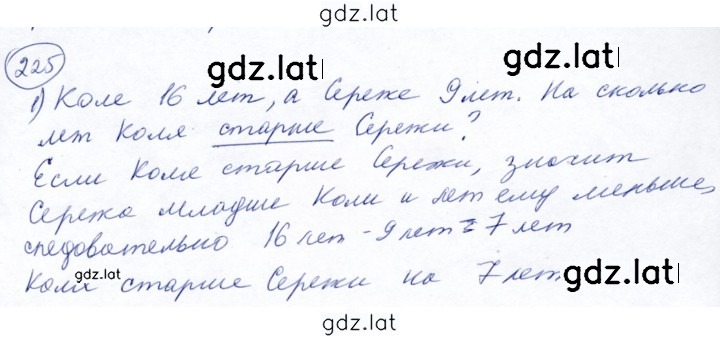 gdz.lat
225
gdz.lat
1) Коле 16 лет, а Сереже 9 лет. На сколько
лет Коля старше Сережи?
gdz.lat
Если Коля старше Сережи, значит
Сережа младше Коли и лет ему меньше,
gdz.lat
следовательно 16 лет - 9 лет = 7 лет
gdz.lat
gdz.lat
Коля старше Сережи на 7 лет
gdz.lat